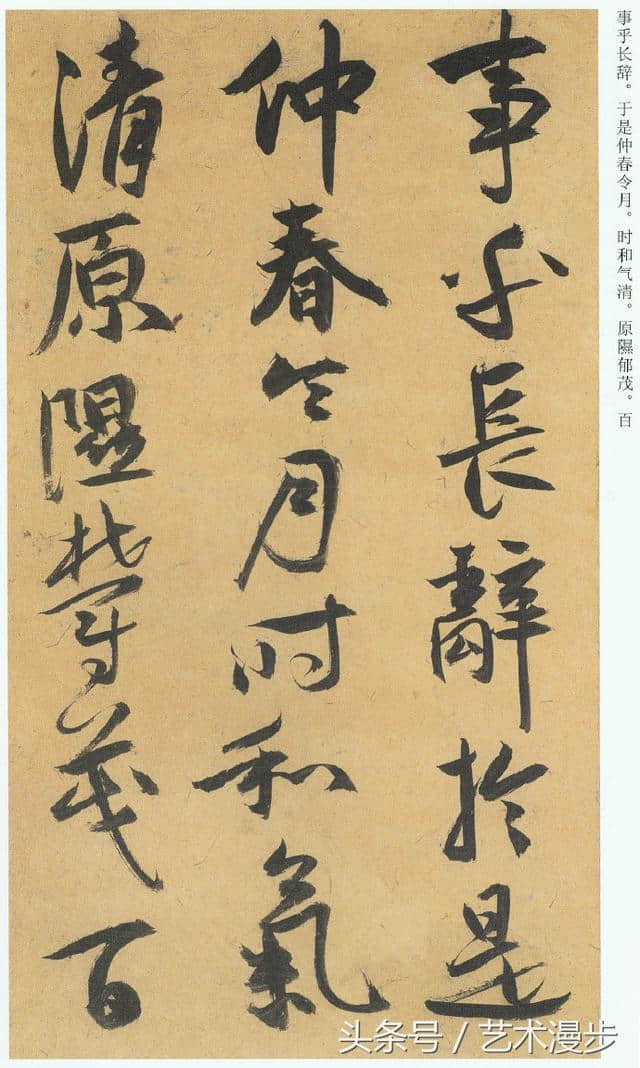 事乎長辭於是
仲春令月时和氣
清原隰鬱茂百
事乎长辞。于是仲春令月。时和气清。原隰郁茂。百
头条号 / 艺术漫步